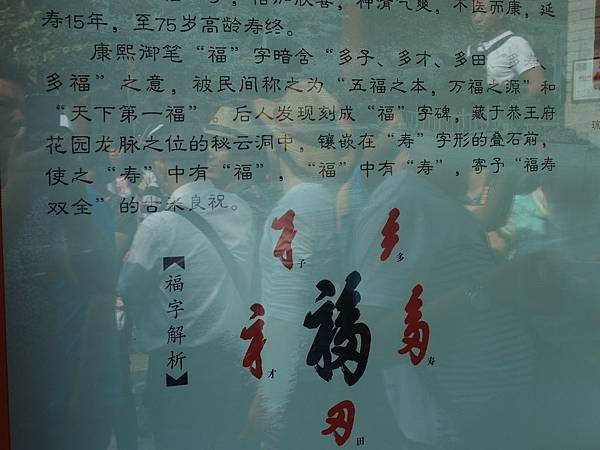 恰加欣喜，神清气爽，不医而康，延
寿15年，至75岁高龄寿终。
康熙御笔“福”字暗含“多子、多才、多田、多寿、
多福”之意，被民间称之为“五福之本，万福之源”和
“天下第一福”。后人发现刻成“福”字碑，藏于恭王府
花园龙脉之位的秘云洞中，镶嵌在“寿”字形的叠石前，
使之“寿”中有“福”，“福”中有“寿”，寄予“福寿
双全”的古来良祝。
【福字解析】
子
多
福
才
寿
田
琉